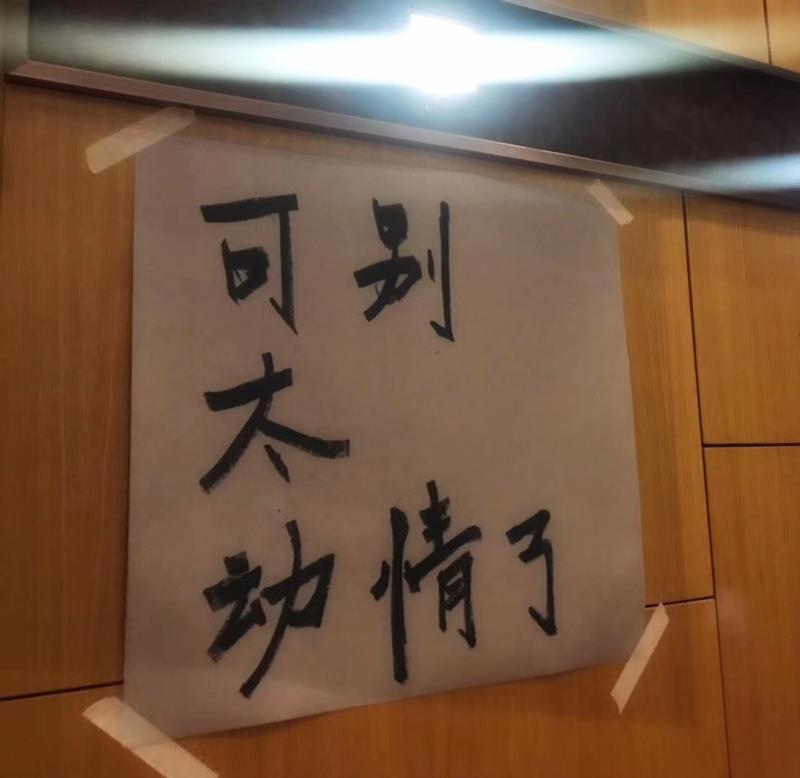 可别
太
动情了